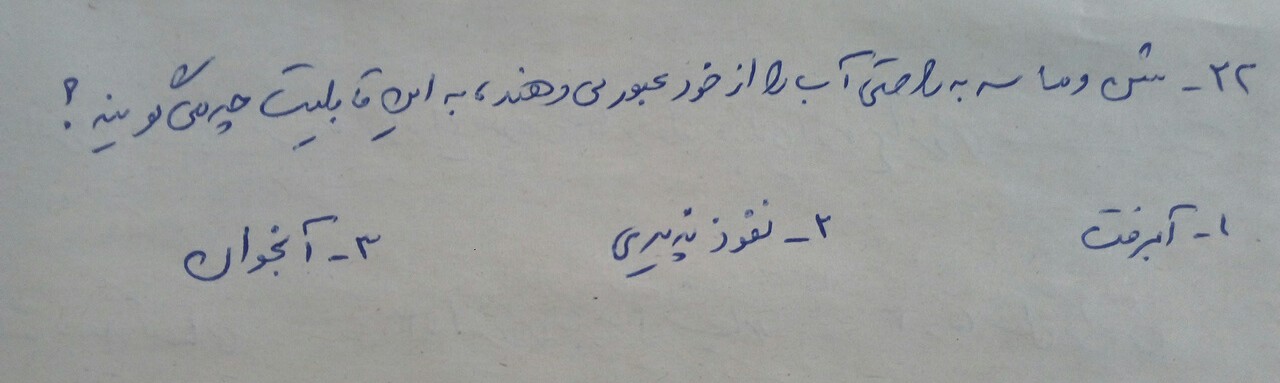 ۲۲- شن و ماسه به راحتی آب را از خود عبور می دهند، به این قابلیت چه می گویند؟
۱- آبرفت ۲- نفوذ پذیری ۳- آبخوان